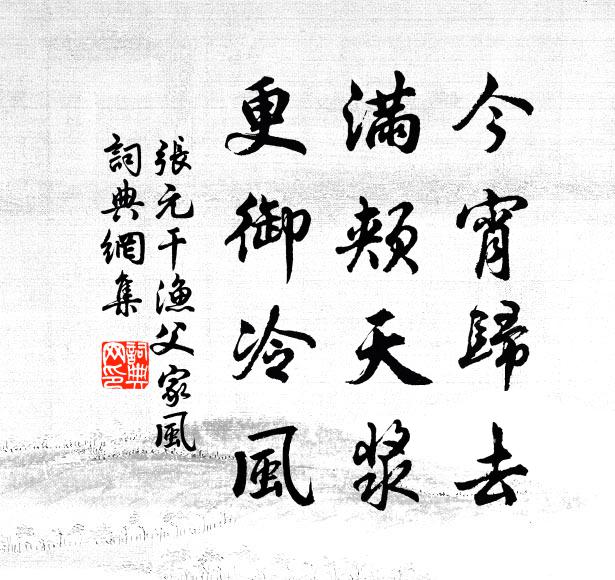 今宵歸去
滿頰天漿
更御冷風
張元干漁父家風
詞典網集
詞典
網印